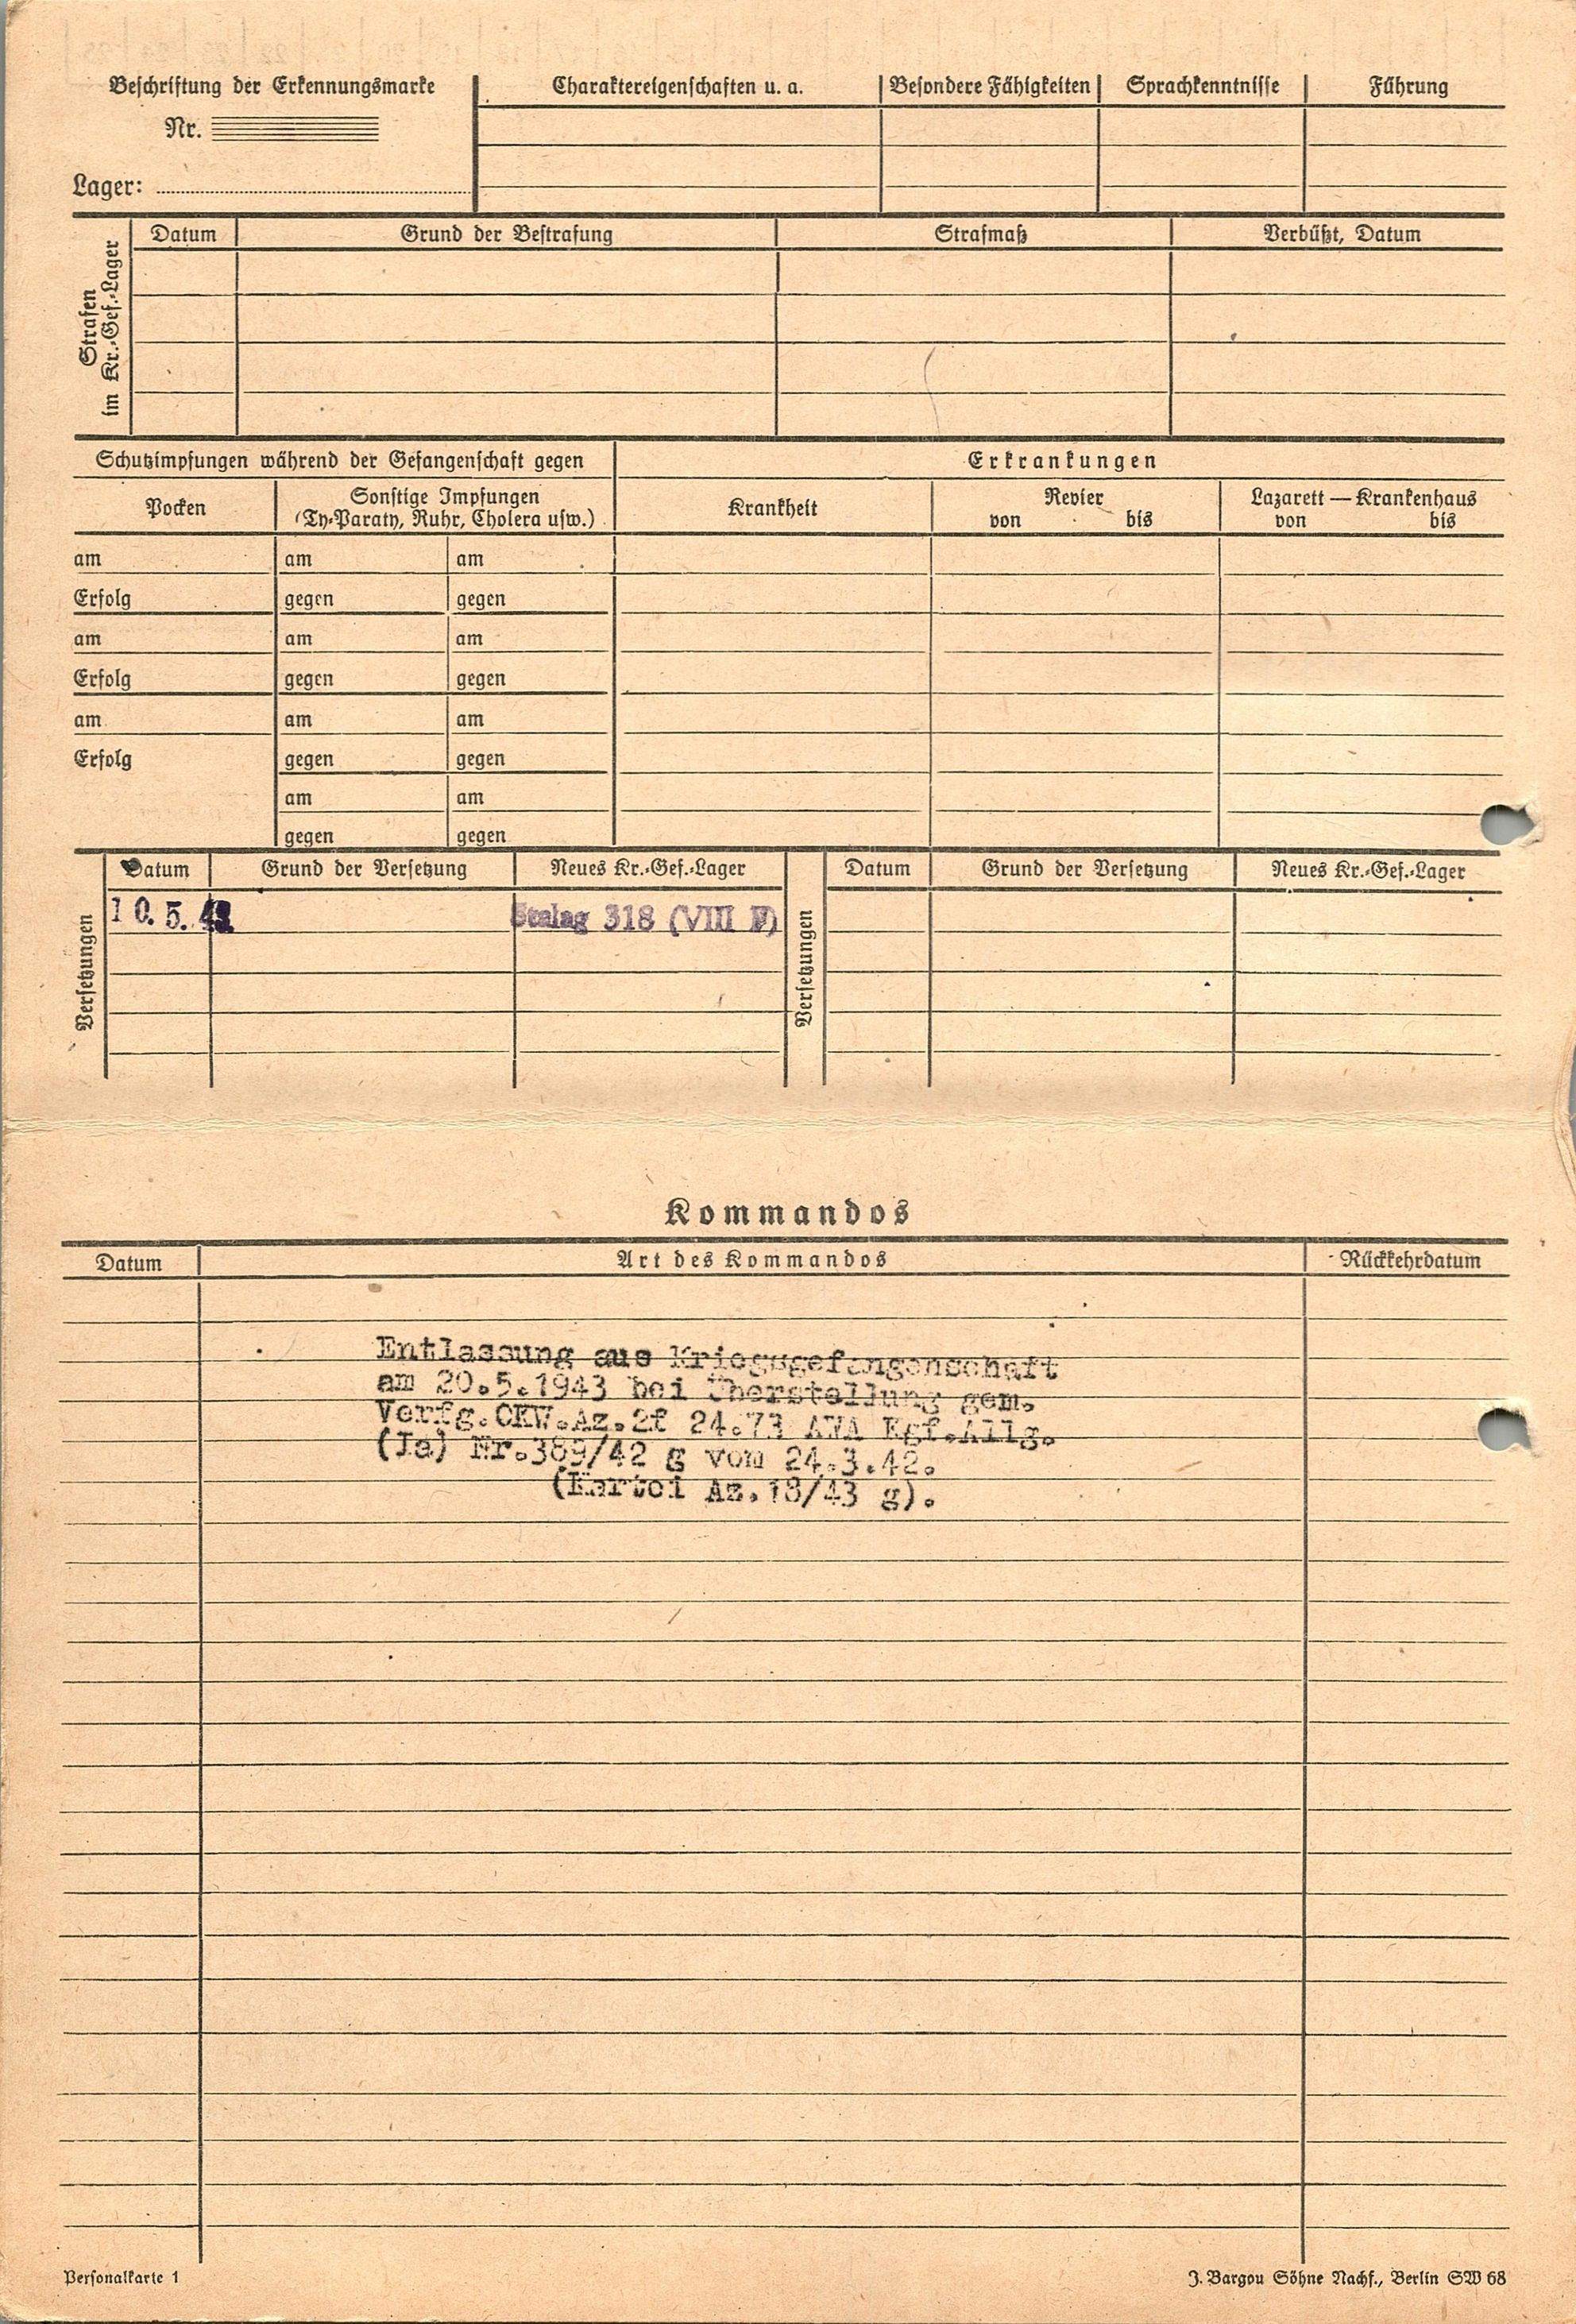 Beschriftung der Erkennungsmarke
Nr.
Lager:
Charaktereigenschaften u. a.
Besondere Fähigkeiten
Sprachkenntnisse
Führung
Strafen
im Kr.-Gef.-Lager
Datum
Grund der Bestrafung
Strafmaß
Verbüßt, Datum
Schutzimpfungen während der Gefangenschaft gegen
Erkrankungen
Pocken
Sonstige Impfungen
(Ty-Paraty, Ruhr, Cholera usw.)
Krankheit
Revier
von bis
Lazarett — Krankenhaus
von bis
am am am
Erfolg gegen gegen
am am am
Erfolg gegen gegen
am am am
Erfolg gegen gegen
am am
gegen gegen
Versetzungen
Datum Grund der Versetzung Neues Kr.-Gef.-Lager
10.5.43 Stalag 318 (VIII F)
Versetzungen
Datum Grund der Versetzung Neues Kr.-Gef.-Lager
Kommandos
Datum Art des Kommandos Rückkehrdatum
Entlassung aus Kriegsgefangenschaft
am 20.5.1943 bei Überstellung gem.
Verfg.OKW.Az.2f 24.73 AWA Kgf.Allg.
(Ia) Nr.389/42 g vom 24.3.42.
(Kartei Az.18/43 g).
Personalkarte 1
J. Bargou Söhne Nachf., Berlin SW 68